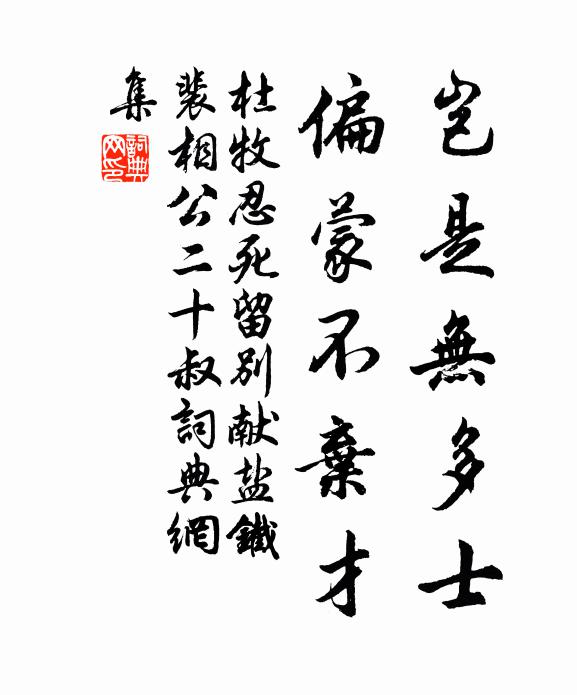 豈是無多士
偏蒙不棄才
杜牧忍死留別献盐鐵
裴相公二十叔詞典網
集
詞典網印